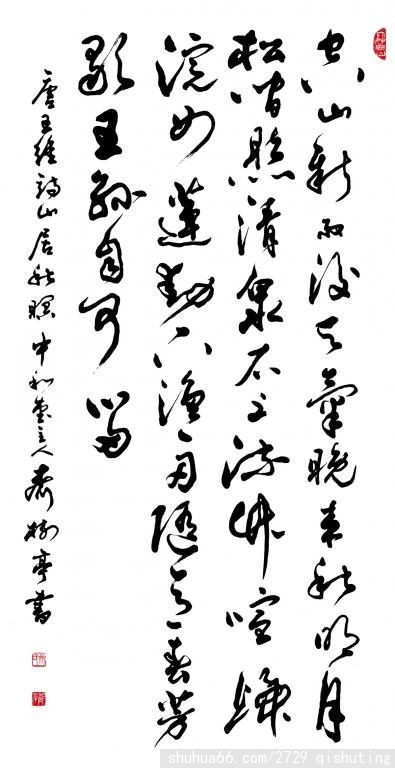 空山新雨後天氣晚來秋明月
松間照清泉石上流竹喧歸
浣女蓮動下漁舟隨意春芳
歇王孫自可留
唐王維詩山居秋暝中和堂主人齊樹亭書
shuhua66.com/2729 qishuting